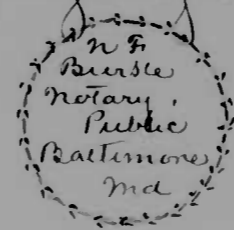 N F
Bursle
Notary,
Public
Baltimore
Md